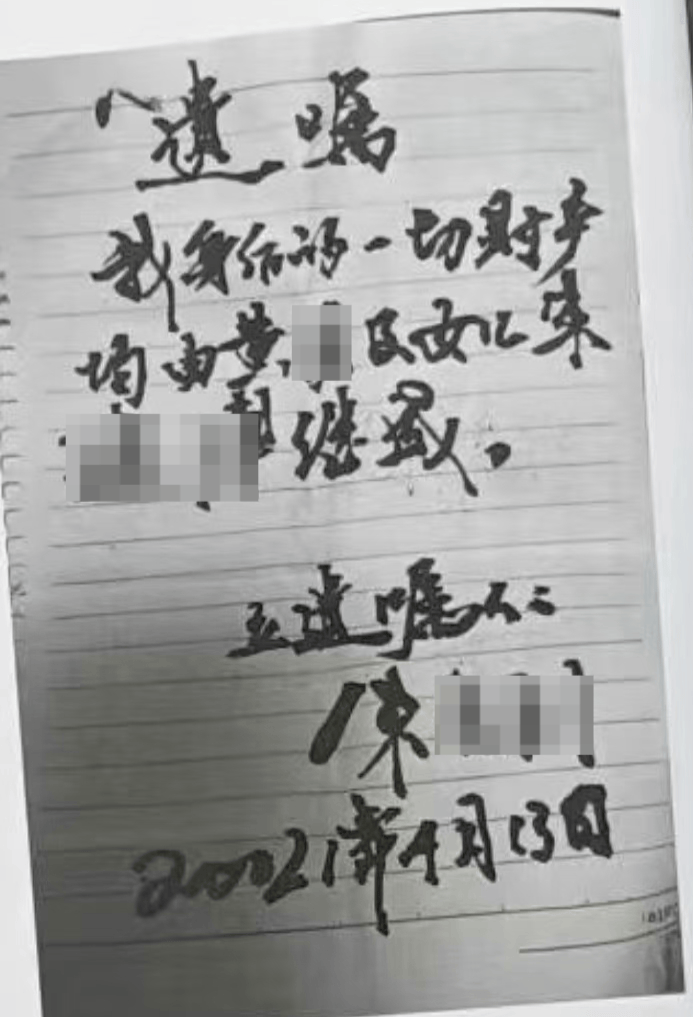 遗嘱
我身后的一切财产
均由黄 及女儿朱
继承。
立遗嘱人:
陈
20021年4月13日